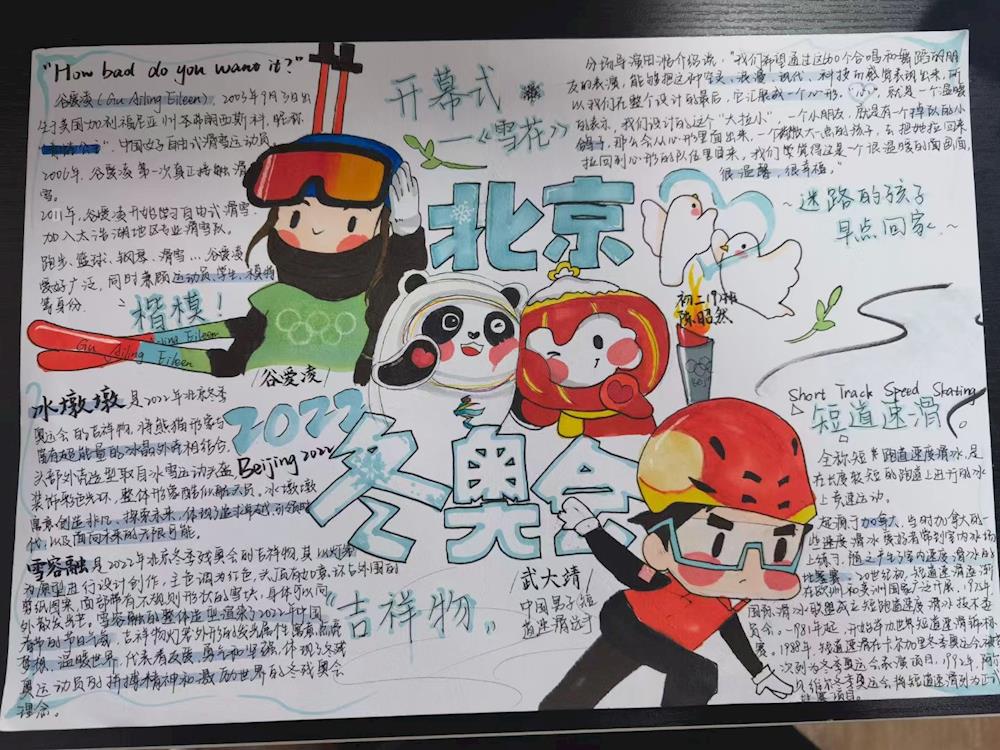 "How bad do you want it?"
谷爱凌(Gu Ailing Eileen), 2003年9月3日出
生于美国加利福尼亚州圣弗朗西斯科, 昵称
中国女子自由式滑雪运动员。
2006年, 谷爱凌第一次真正接触滑
雪。
2011年, 谷爱凌开始学习自由式滑雪,
加入太浩湖地区专业滑雪队。
跑步、篮球、钢琴、滑雪…谷爱凌
爱好广泛, 同时兼顾运动员、学生、模特
等身份。
楷模!
Gu Ailing Eileen
Ailing Eileen
谷爱凌
开幕式
—《雪花》
分场导演田湉介绍说, "我们希望通过这600个合唱和舞蹈的朋
友的表演, 能够把这种空灵、浪漫、现代、科技的感觉表现出来, 所
以我们在整个设计的最后, 它汇聚成一个心形, 就是一个温暖
的表示, 我们设计的这个"大拉小", 一个小朋友, 就是有一个掉队的小
鸽子, 那么会从心形里面出来, 一个稍微大一点的孩子, 去把她拉回来
拉回到心形的队伍里面来, 我们觉得这是一个很温暖的画面,
很温馨, 很幸福。"
~迷路的孩子
早点回家~
北京
初二19班
陈昭然
2022
Beijing 2022
冬奥会
冰墩墩是2022年北京冬季
奥运会的吉祥物, 将熊猫形象与
富有超能量的冰晶外壳相结合,
头部外壳造型取自冰雪运动头盔
装饰彩色光环, 整体形象酷似航天员。冰墩墩
寓意创造非凡、探索未来, 体现了追求卓越, 引领时
代, 以及面向未来的无限可能。
雪容融是2022年北京冬季残奥会的吉祥物, 其以灯笼
为原型进行设计创作, 主色调为红色, 头顶有如意, 环与外围的
剪纸图案, 面部带有不规则形状的雪块, 身体可以向
外散发光芒。雪容融的整体造型渲染了2022年中国
春节的节日气氛, 吉祥物灯笼外形的发光属性寓意点亮
梦想, 温暖世界, 代表着友爱、勇气和坚强, 体现了冬残
奥运动员的拼搏精神和激励世界的冬残奥会
理念。
"吉祥物"
武大靖
中国男子短
道速滑选手
Short Track Speed Skating
短道速滑
全称短跑道速度滑冰, 是
在长度较短的跑道上进行的冰
上竞速运动。
起源于加拿大, 当时加拿大的一
些速度滑冰爱好者常到室内冰场
上练习, 随之产生了室内速度滑冰的
比赛。20世纪初, 短道速滑逐渐
在欧洲和美洲国家广泛开展, 1975年
国际滑冰联盟成立短跑道速度滑冰技术委
员会。1981年起, 开始举办世界短道速滑锦标
赛。1988年, 短道速滑在卡尔加里冬季奥运会被
次列为冬季奥运会表演项目, 1992年, 阿
贝维尔冬季奥运会将短道速滑列为正式
比赛项目。